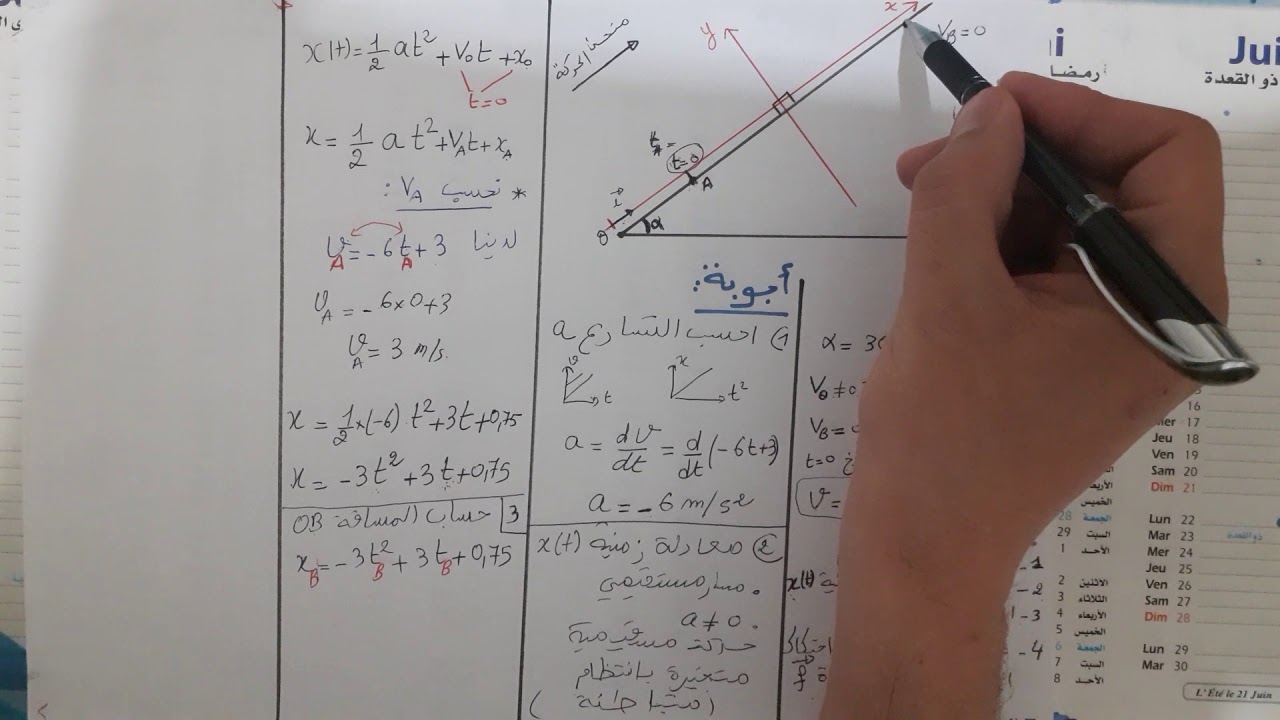 x(t) = 1/2 at² + V₀t + x₀
t=0
x = 1/2 a t² + V_A t + x_A
* نحسب V_A :
لدينا V_A = -6t_A + 3
V_A = -6×0+3
V_A = 3 m/s.
x = 1/2 ×(-6) t² + 3t + 0,75
x = -3t² + 3t + 0,75
3 حساب المسافة OB
x_B = -3t_B² + 3t_B + 0,75
منحى الحركة
y
x
V_B = 0
t_A =
t=0
A
i
O
α
أجوبة:
1) احسب التسارع a
v
t
x
t²
a = dV/dt = d/dt (-6t+3)
a = -6 m/s²
2) معادلة زمنية x(t)
. مسار مستقيمي
. a ≠ 0
حركة مستقيمية
متغيرة بانتظام
(متباطئة)
α = 3
V₀ ≠ 0
V_B =
t=0
V =
x(t)
f
i
رمضا
Jui
ذو القعدة
16
Mer 17
Jeu 18
Ven 19
Sam 20
Dim 21
Lun 22
Mar 23
Mer 24
Jeu 25
Ven 26
Sam 27
Dim 28
Lun 29
Mar 30
الأربعاء
الخميس
الجمعة 28
السبت 29
الأحد 1
الاثنين 2
الثلاثاء 3
الأربعاء 4
الخميس 5
الجمعة 6
السبت 7
الأحد 8
ذو القعدة
-1
-2
-3
-4
L'Été le 21 Juin